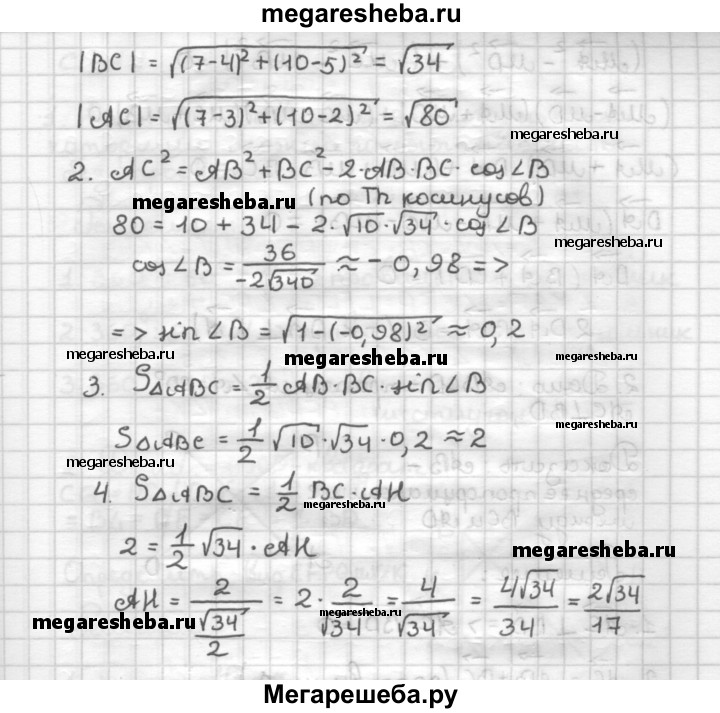 megaresheba.ru
|BC| = √((7-4)²+(10-5)²) = √34
|AC| = √((7-3)²+(10-2)²) = √80
megaresheba.ru
2. AC² = AB² + BC² - 2·AB·BC·cos∠B
megaresheba.ru (по Th косинусов)
80 = 10 + 34 - 2·√10·√34·cos∠B
megaresheba.ru
cos∠B = 36/(-2√340) ≈ -0,98 =>
megaresheba.ru
=> sin∠B = √(1-(-0,98)²) ≈ 0,2
megaresheba.ru megaresheba.ru megaresheba.ru
3. S△ABC = 1/2 AB·BC·sin∠B
megaresheba.ru
S△ABC = 1/2 √10·√34·0,2 ≈ 2
megaresheba.ru
4. S△ABC = 1/2 BC·AH
megaresheba.ru
2 = 1/2 √34·AH
megaresheba.ru
AH = 2/(√34/2) = 2·2/√34 = 4/√34 = 4√34/34 = 2√34/17
megaresheba.ru megaresheba.ru
Мегарешеба.ру